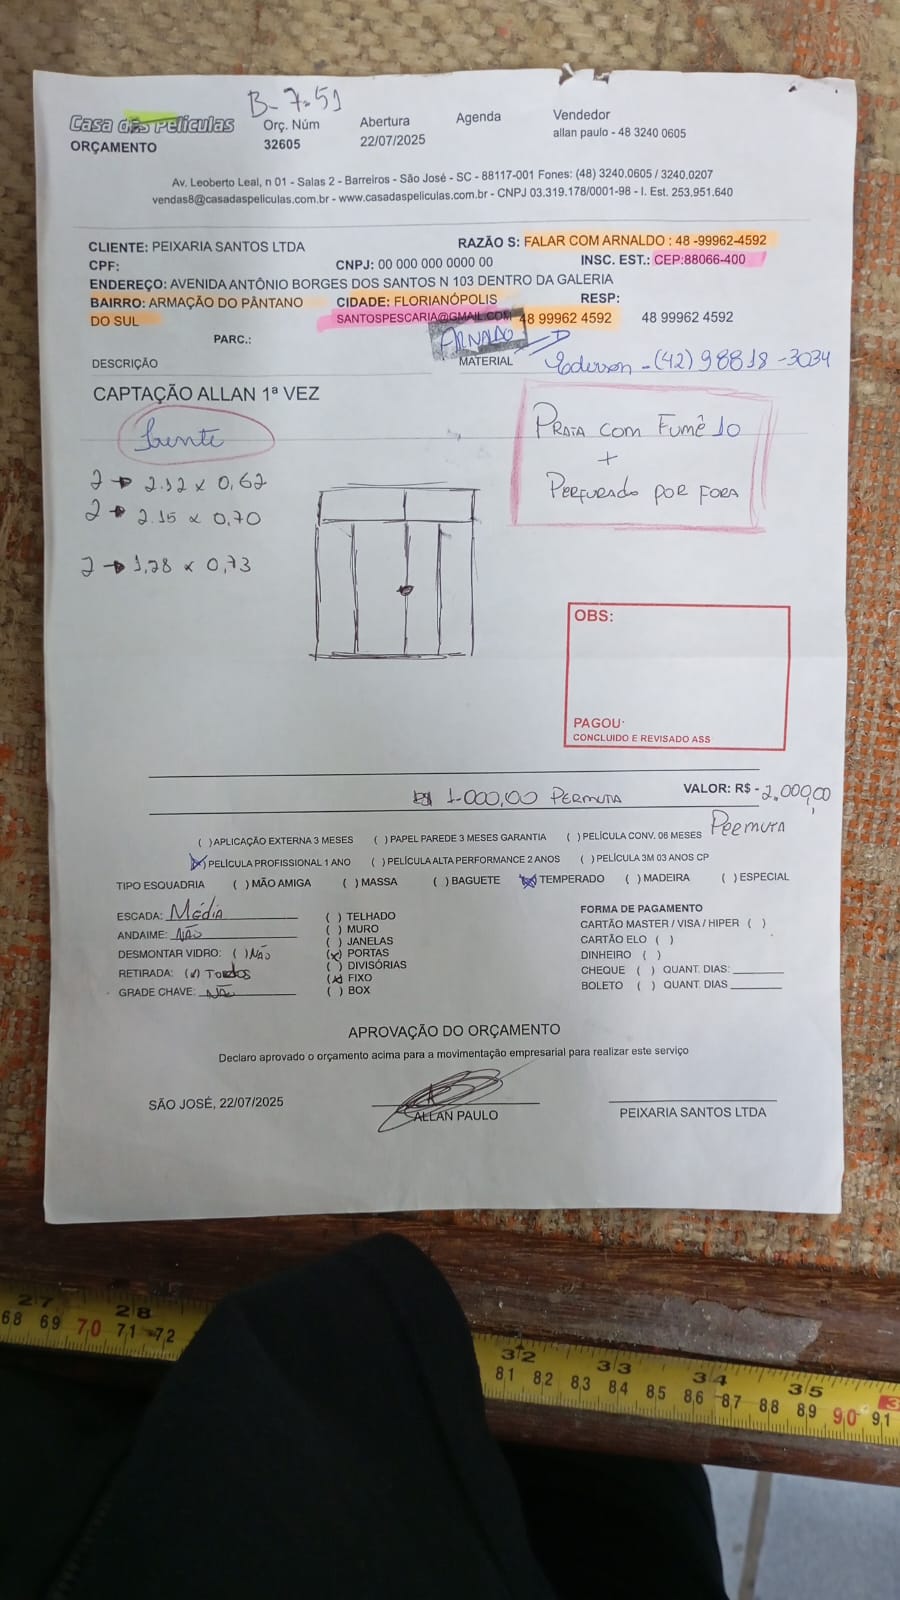 B-7.51
Casa das Películas
ORÇAMENTO
Orç. Núm
32605
Abertura
22/07/2025
Agenda
Vendedor
allan paulo - 48 3240 0605
Av. Leoberto Leal, n 01 - Salas 2 - Barreiros - São José - SC - 88117-001 Fones: (48) 3240.0605 / 3240.0207
vendas8@casadaspeliculas.com.br - www.casadaspeliculas.com.br - CNPJ 03.319.178/0001-98 - I. Est. 253.951.640
CLIENTE: PEIXARIA SANTOS LTDA RAZÃO S: FALAR COM ARNALDO : 48 -99962-4592
CPF: CNPJ: 00 000 000 0000 00 INSC. EST.: CEP:88066-400
ENDEREÇO: AVENIDA ANTÔNIO BORGES DOS SANTOS N 103 DENTRO DA GALERIA
BAIRRO: ARMAÇÃO DO PÂNTANO DO SUL CIDADE: FLORIANÓPOLIS RESP:
SANTOSPESCARIA@GMAIL.COM 48 99962 4592 48 99962 4592
PARC.: ARNALDO
DESCRIÇÃO MATERIAL Ederson - (42) 98818-3034
CAPTAÇÃO ALLAN 1ª VEZ
frente
2 → 2.12 x 0,62
2 → 2.15 x 0,70
2 → 1,28 x 0,73
PRATA COM FUMÊ 10
+
PERFURADO POR FORA
OBS:
PAGOU:
CONCLUIDO E REVISADO ASS
1.000,00 PERMUTA VALOR: R$ - 2.000,00
PERMUTA
( ) APLICAÇÃO EXTERNA 3 MESES ( ) PAPEL PAREDE 3 MESES GARANTIA ( ) PELÍCULA CONV. 06 MESES
(X) PELÍCULA PROFISSIONAL 1 ANO ( ) PELÍCULA ALTA PERFORMANCE 2 ANOS ( ) PELÍCULA 3M 03 ANOS CP
TIPO ESQUADRIA ( ) MÃO AMIGA ( ) MASSA ( ) BAGUETE (X) TEMPERADO ( ) MADEIRA ( ) ESPECIAL
ESCADA: Média
ANDAIME: NÃO
DESMONTAR VIDRO: ( ) NÃO
RETIRADA: (x) TODOS
GRADE CHAVE: NÃO
( ) TELHADO
( ) MURO
( ) JANELAS
(x) PORTAS
( ) DIVISÓRIAS
(x) FIXO
( ) BOX
FORMA DE PAGAMENTO
CARTÃO MASTER / VISA / HIPER ( )
CARTÃO ELO ( )
DINHEIRO ( )
CHEQUE ( ) QUANT. DIAS:
BOLETO ( ) QUANT. DIAS
APROVAÇÃO DO ORÇAMENTO
Declaro aprovado o orçamento acima para a movimentação empresarial para realizar este serviço
SÃO JOSÉ, 22/07/2025
ALLAN PAULO
PEIXARIA SANTOS LTDA
27 28 32 33 34 35
68 69 70 71 72 81 82 83 84 85 86 87 88 89 90 91